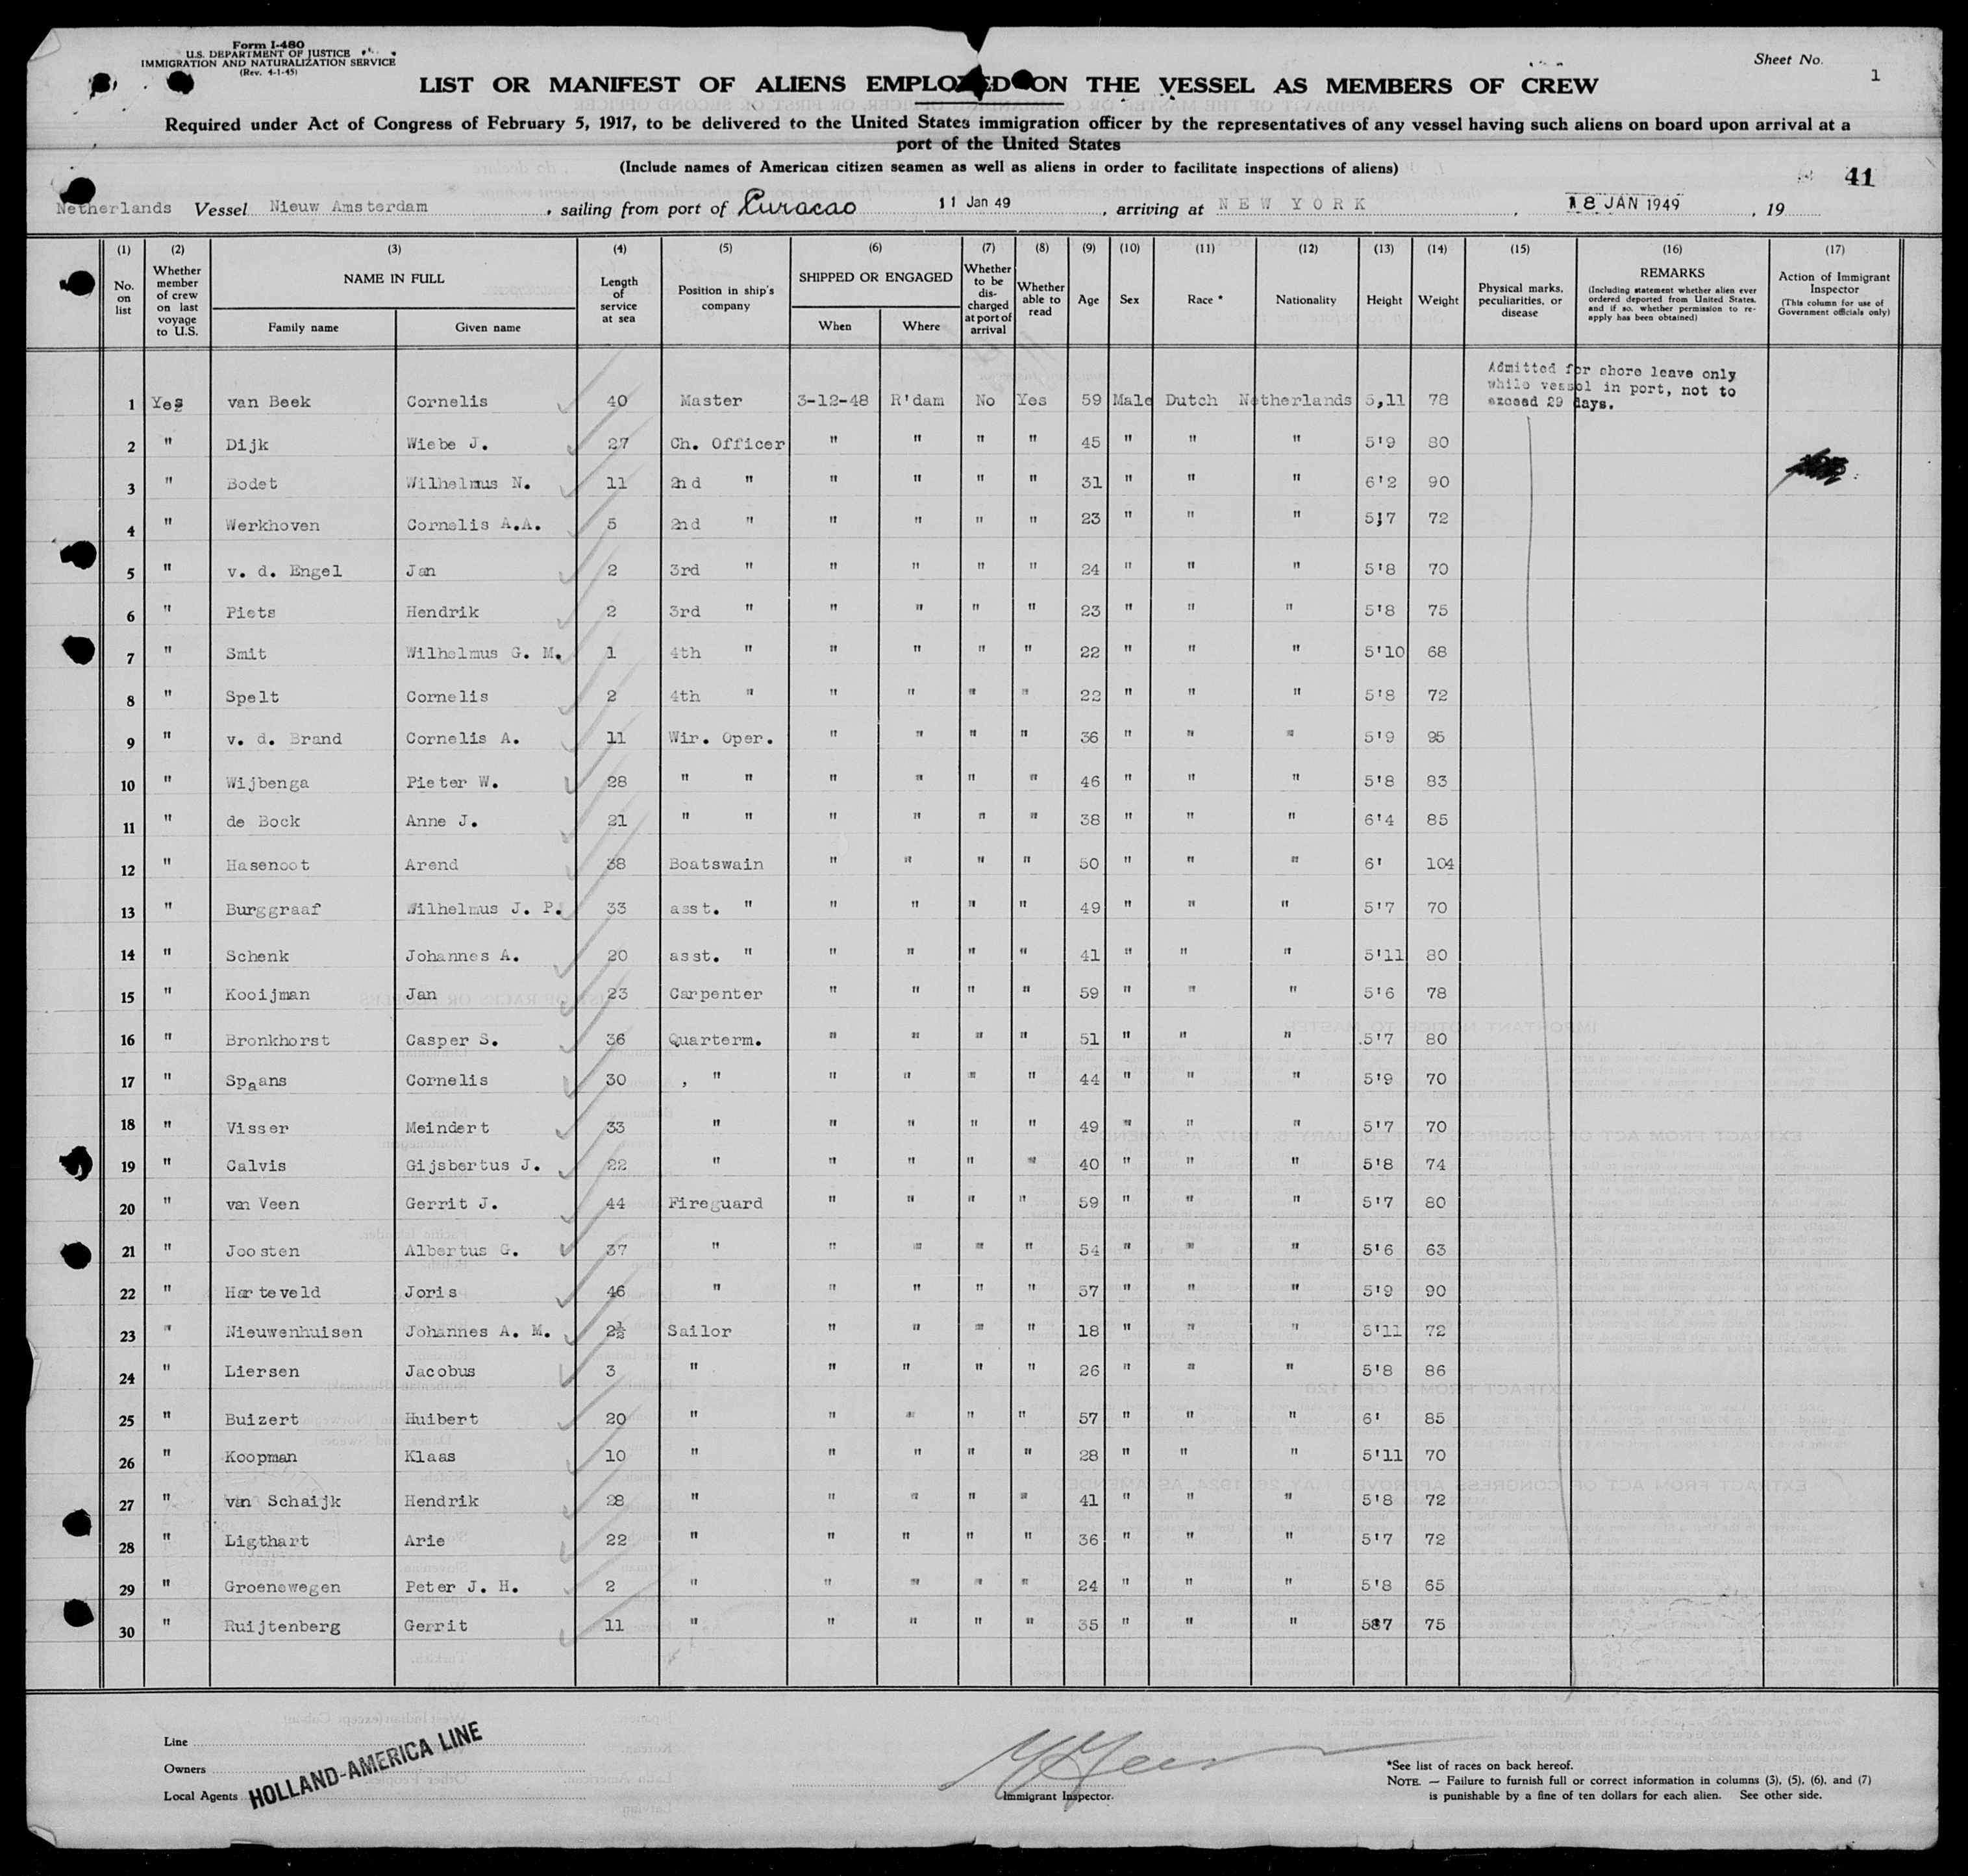 Form I-480
U.S. DEPARTMENT OF JUSTICE
IMMIGRATION AND NATURALIZATION SERVICE
(Rev. 4-1-45)
Sheet No. 1
LIST OR MANIFEST OF ALIENS EMPLOYED ON THE VESSEL AS MEMBERS OF CREW
Required under Act of Congress of February 5, 1917, to be delivered to the United States immigration officer by the representatives of any vessel having such aliens on board upon arrival at a
port of the United States
(Include names of American citizen seamen as well as aliens in order to facilitate inspections of aliens)
41
Netherlands Vessel Nieuw Amsterdam, sailing from port of Curacao 11 Jan 49, arriving at NEW YORK, 18 JAN 1949, 19
(1) (2) (3) (4) (5) (6) (7) (8) (9) (10) (11) (12) (13) (14) (15) (16) (17)
No. on list
Whether member of crew on last voyage to U.S.
NAME IN FULL
Family name Given name
Length of service at sea
Position in ship's company
SHIPPED OR ENGAGED
When Where
Whether to be discharged at port of arrival
Whether able to read
Age
Sex
Race *
Nationality
Height
Weight
Physical marks, peculiarities, or disease
REMARKS
(Including statement whether alien ever ordered deported from United States, and if so, whether permission to re-apply has been obtained)
Action of Immigrant Inspector
(This column for use of Government officials only)
Admitted for shore leave only
while vessel in port, not to
exceed 29 days.
1 Yes van Beek Cornelis 40 Master 3-12-48 R'dam No Yes 59 Male Dutch Netherlands 5,11 78
2 " Dijk Wiebe J. 27 Ch. Officer " " " " 45 " " " 5'9 80
3 " Bodet Wilhelmus N. 11 2nd " " " " " 31 " " " 6'2 90
4 " Werkhoven Cornelis A.A. 5 2nd " " " " " 23 " " " 5'7 72
5 " v. d. Engel Jan 2 3rd " " " " " 24 " " " 5'8 70
6 " Piets Hendrik 2 3rd " " " " " 23 " " " 5'8 75
7 " Smit Wilhelmus G. M. 1 4th " " " " " 22 " " " 5'10 68
8 " Spelt Cornelis 2 4th " " " " " 22 " " " 5'8 72
9 " v. d. Brand Cornelis A. 11 Wir. Oper. " " " " 36 " " " 5'9 95
10 " Wijbenga Pieter W. 28 " " " " " " 46 " " " 5'8 83
11 " de Bock Anne J. 21 " " " " " " 38 " " " 6'4 85
12 " Hasenoot Arend 38 Boatswain " " " " 50 " " " 6' 104
13 " Burggraaf Wilhelmus J. P. 33 asst. " " " " " 49 " " " 5'7 70
14 " Schenk Johannes A. 20 asst. " " " " " 41 " " " 5'11 80
15 " Kooijman Jan 23 Carpenter " " " " 59 " " " 5'6 78
16 " Bronkhorst Casper S. 36 Quarterm. " " " " 51 " " " 5'7 80
17 " Spaans Cornelis 30 , " " " " " 44 " " " 5'9 70
18 " Visser Meindert 33 " " " " " 49 " " " 5'7 70
19 " Calvis Gijsbertus J. 22 " " " " " 40 " " " 5'8 74
20 " van Veen Gerrit J. 44 Fireguard " " " " 59 " " " 5'7 80
21 " Joosten Albertus G. 37 " " " " " 54 " " " 5'6 63
22 " Harteveld Joris 46 " " " " " 57 " " " 5'9 90
23 " Nieuwenhuisen Johannes A. M. 2½ Sailor " " " " 18 " " " 5'11 72
24 " Liersen Jacobus 3 " " " " " 26 " " " 5'8 86
25 " Buizert Huibert 20 " " " " " 57 " " " 6' 85
26 " Koopman Klaas 10 " " " " " 28 " " " 5'11 70
27 " van Schaijk Hendrik 28 " " " " " 41 " " " 5'8 72
28 " Ligthart Arie 22 " " " " " 36 " " " 5'7 72
29 " Groenewegen Peter J. H. 2 " " " " " 24 " " " 5'8 65
30 " Ruijtenberg Gerrit 11 " " " " " 35 " " " 5'7 75
Line
Owners
Local Agents HOLLAND-AMERICA LINE
Immigrant Inspector.
*See list of races on back hereof.
NOTE. — Failure to furnish full or correct information in columns (3), (5), (6), and (7)
is punishable by a fine of ten dollars for each alien. See other side.